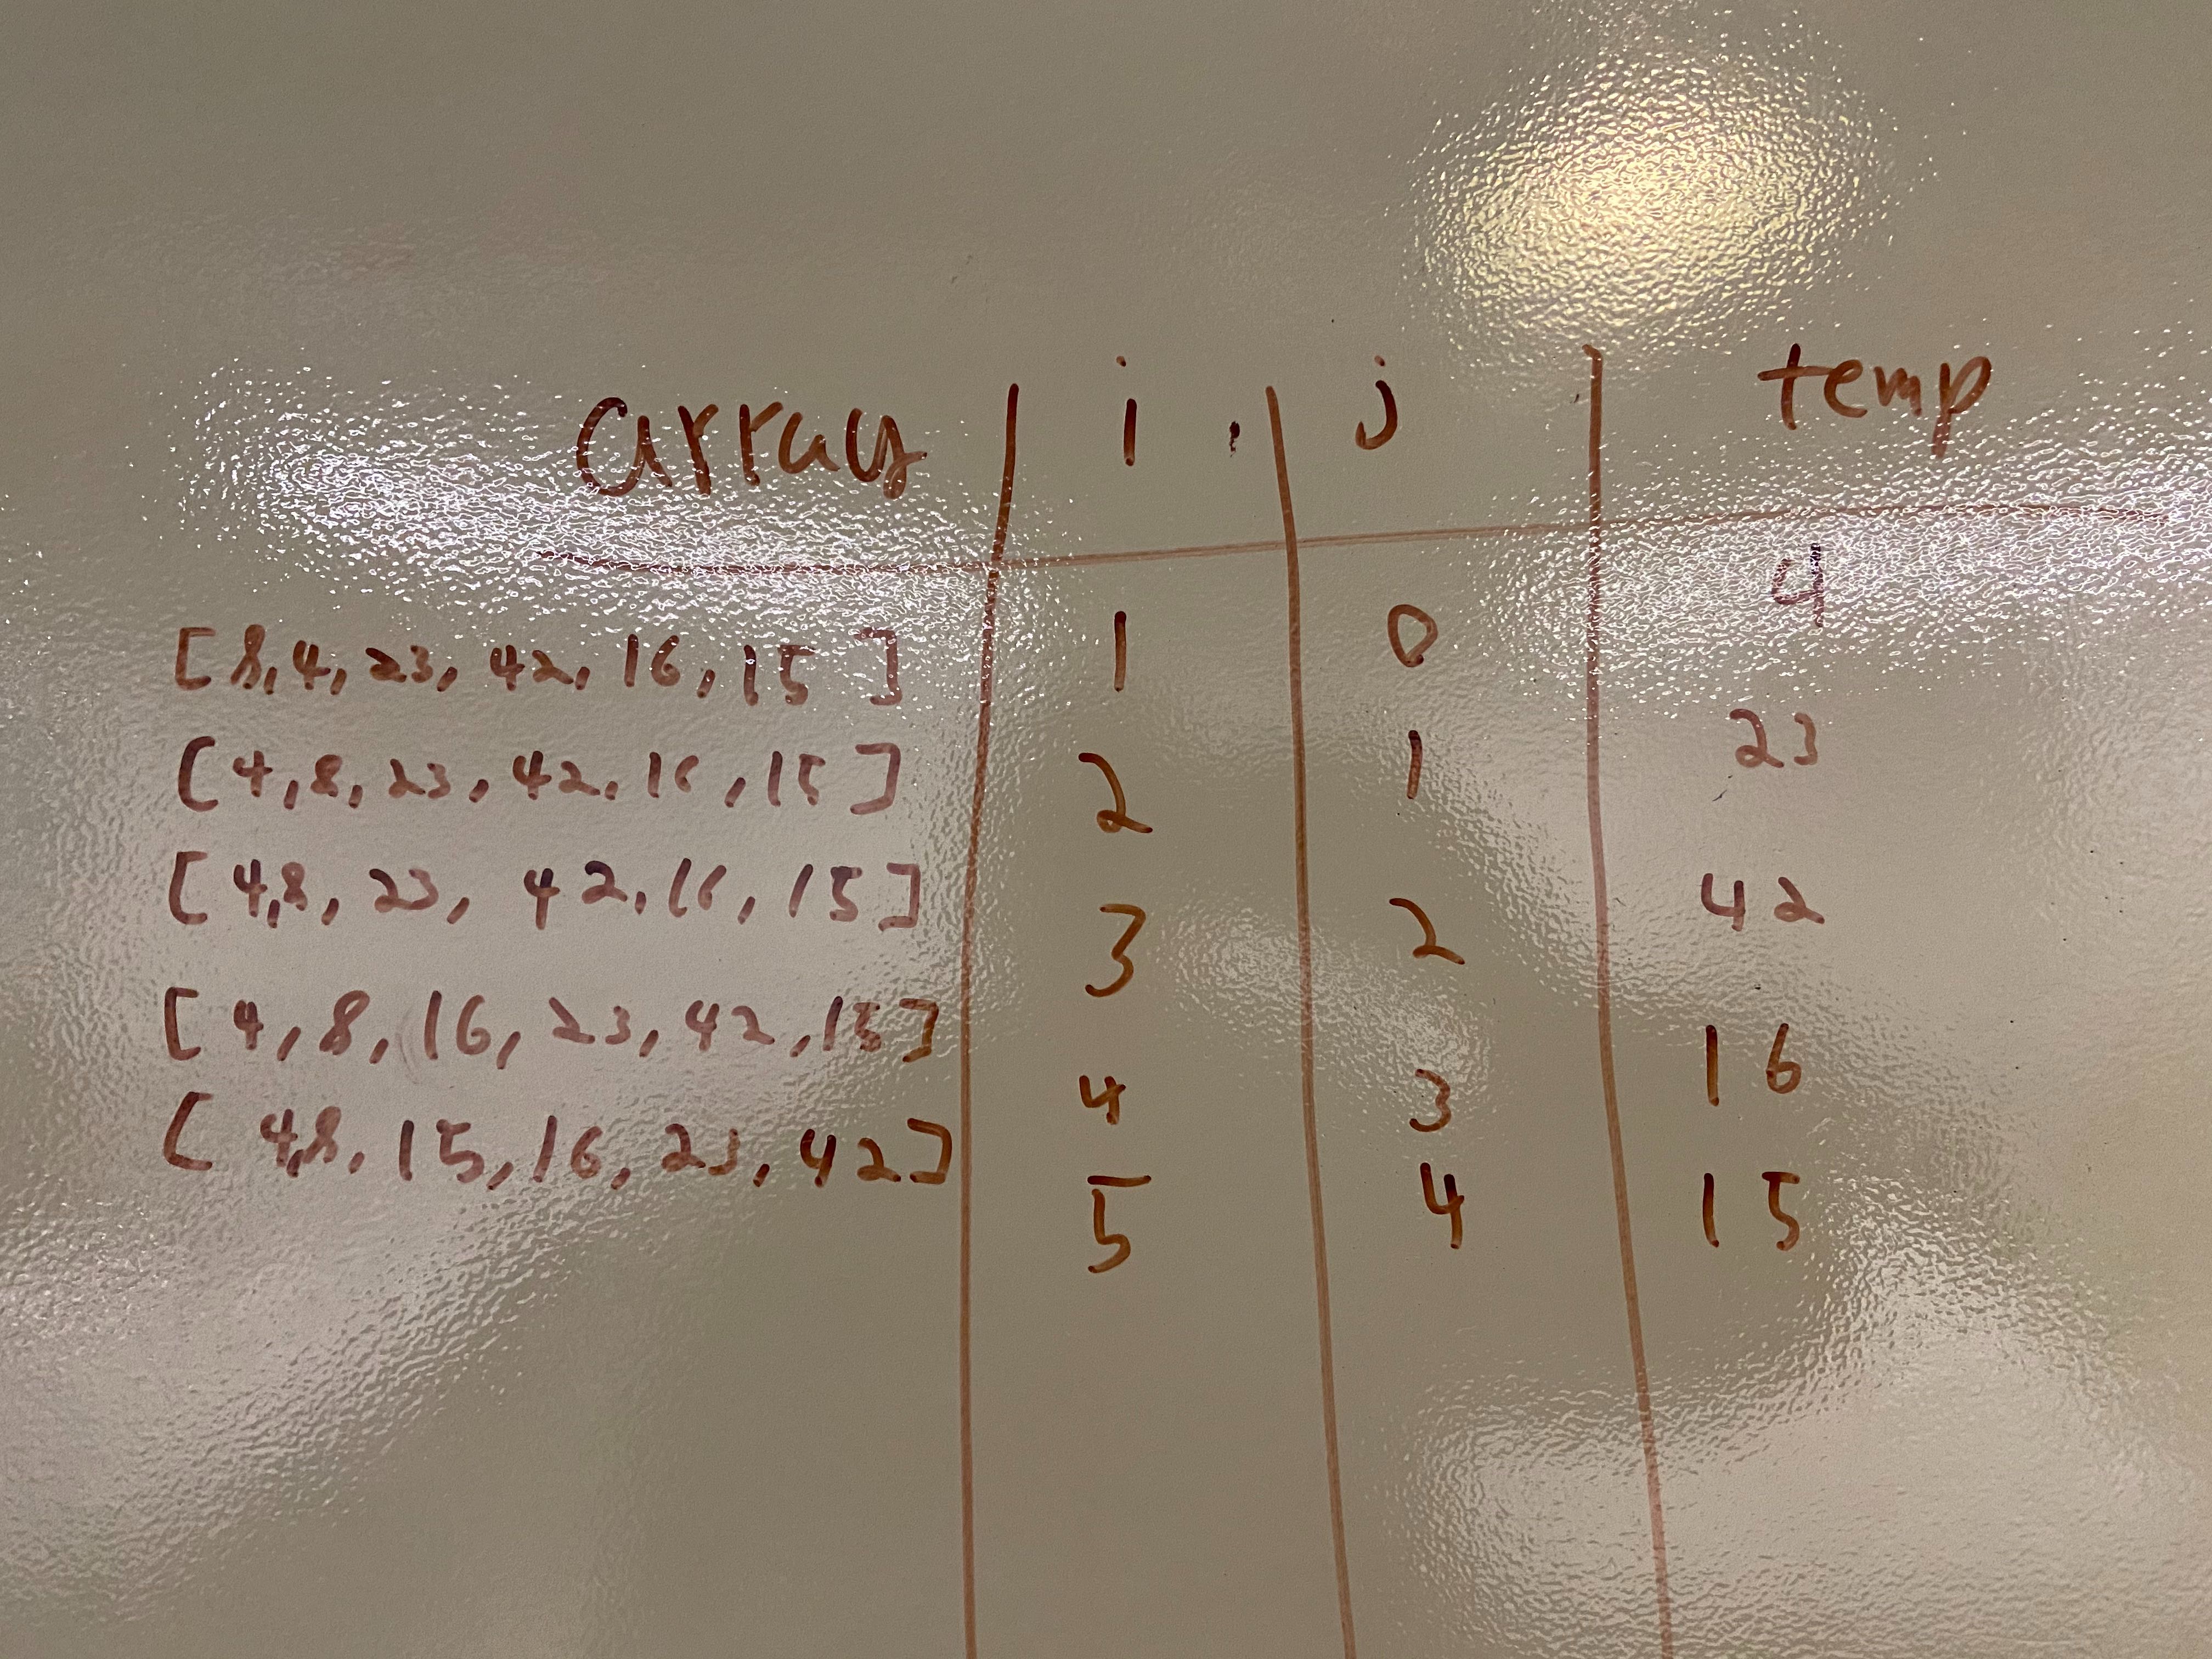 array i j temp
[8,4,23,42,16,15] 1 0 4
[4,8,23,42,16,15] 2 1 23
[4,8,23,42,16,15] 3 2 42
[4,8,16,23,42,15] 4 3 16
[4,8,15,16,23,42] 5 4 15